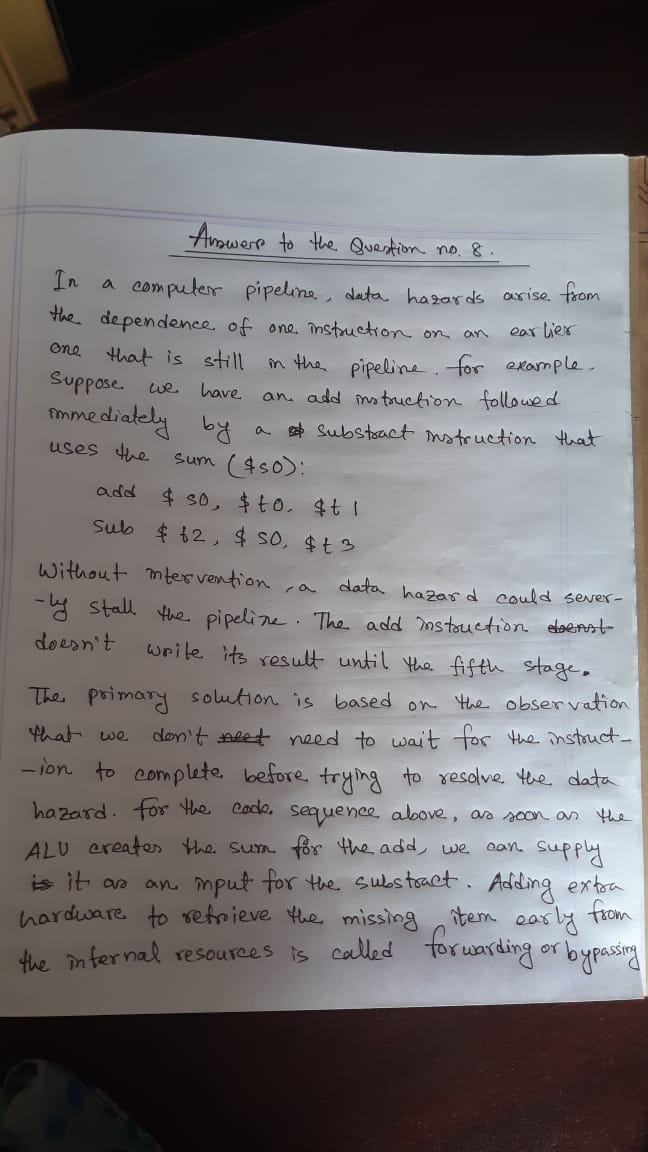 Answers to the Question no. 8.
In a computer pipeline, data hazards arise from
the dependence of one instruction on an earlier
one that is still in the pipeline. for example.
Suppose we have an add instruction followed
immediately by a substract instruction that
uses the sum ($s0):
add $ s0, $t0. $t1
sub $ t2, $ s0, $t3
Without intervention, a data hazard could sever-
-ly stall the pipeline. The add instruction doenst
doesn't write its result until the fifth stage.
The primary solution is based on the observation
that we don't neet need to wait for the instruct-
-ion to complete before trying to resolve the data
hazard. for the code sequence above, as soon as the
ALU creates the sum for the add, we can supply
is it as an input for the substract. Adding extra
hardware to retrieve the missing item early from
the internal resources is called forwarding or bypassing